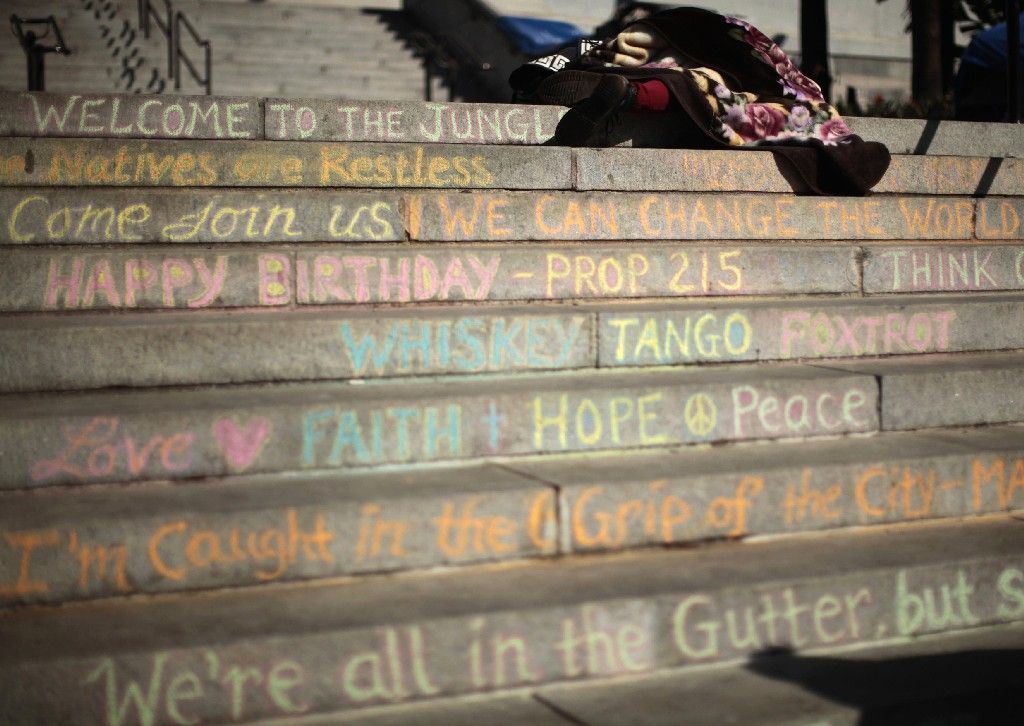 WELCOME TO THE JUNGL
Natives are Restless
Come Join us WE CAN CHANGE THE WORLD
HAPPY BIRTHDAY - PROP 215 THINK
WHISKEY TANGO FOXTROT
Love FAITH HOPE Peace
I'm Caught in the Grip of the City - MA
We're all in the Gutter, but S